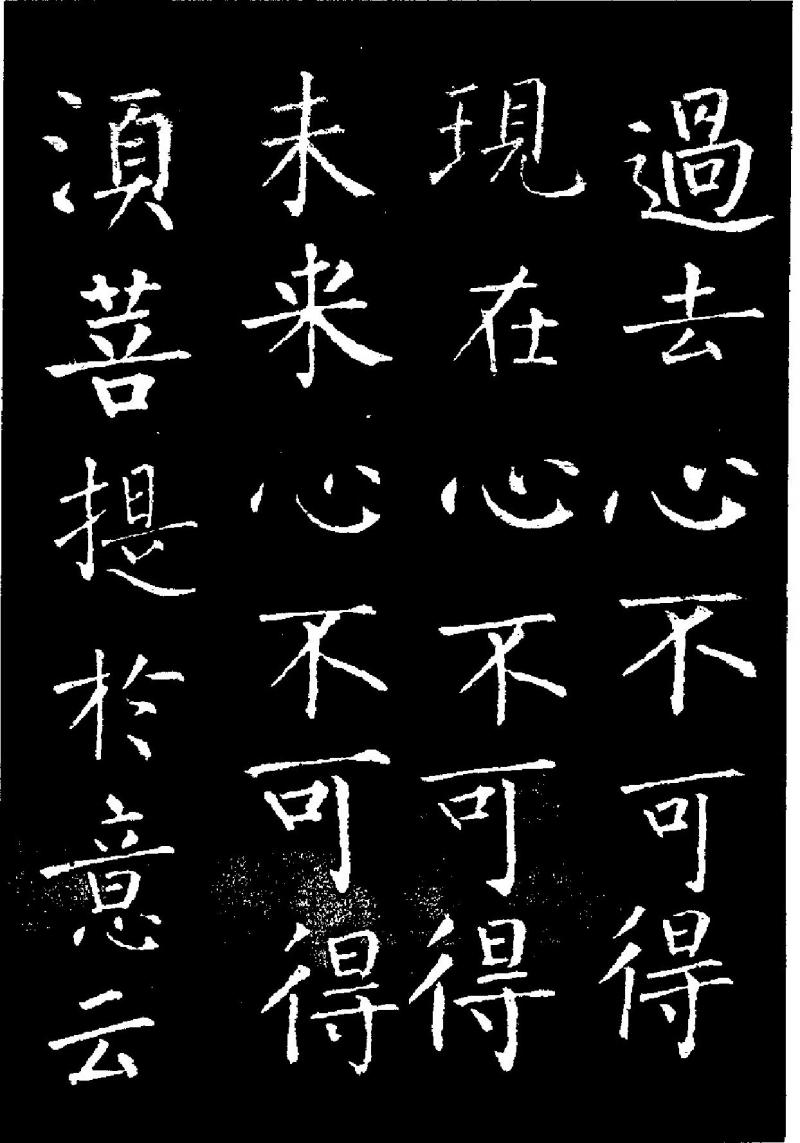 過去心不可得
現在心不可得
未来心不可得
湏菩提於意云